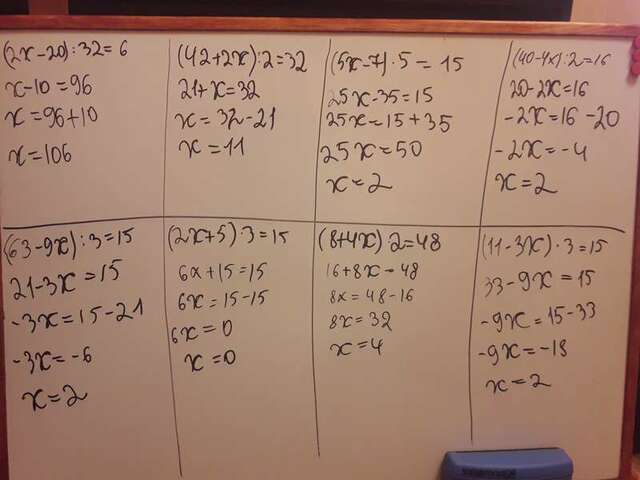 (2x-20):32=6
x-10=96
x=96+10
x=106
(42+2x):2=32
21+x=32
x=32-21
x=11
(5x-7)·5=15
25x-35=15
25x=15+35
25x=50
x=2
(40-4x):2=16
20-2x=16
-2x=16-20
-2x=-4
x=2
(63-9x):3=15
21-3x=15
-3x=15-21
-3x=-6
x=2
(2x+5)·3=15
6x+15=15
6x=15-15
6x=0
x=0
(8+4x)·2=48
16+8x=48
8x=48-16
8x=32
x=4
(11-3x)·3=15
33-9x=15
-9x=15-33
-9x=-18
x=2